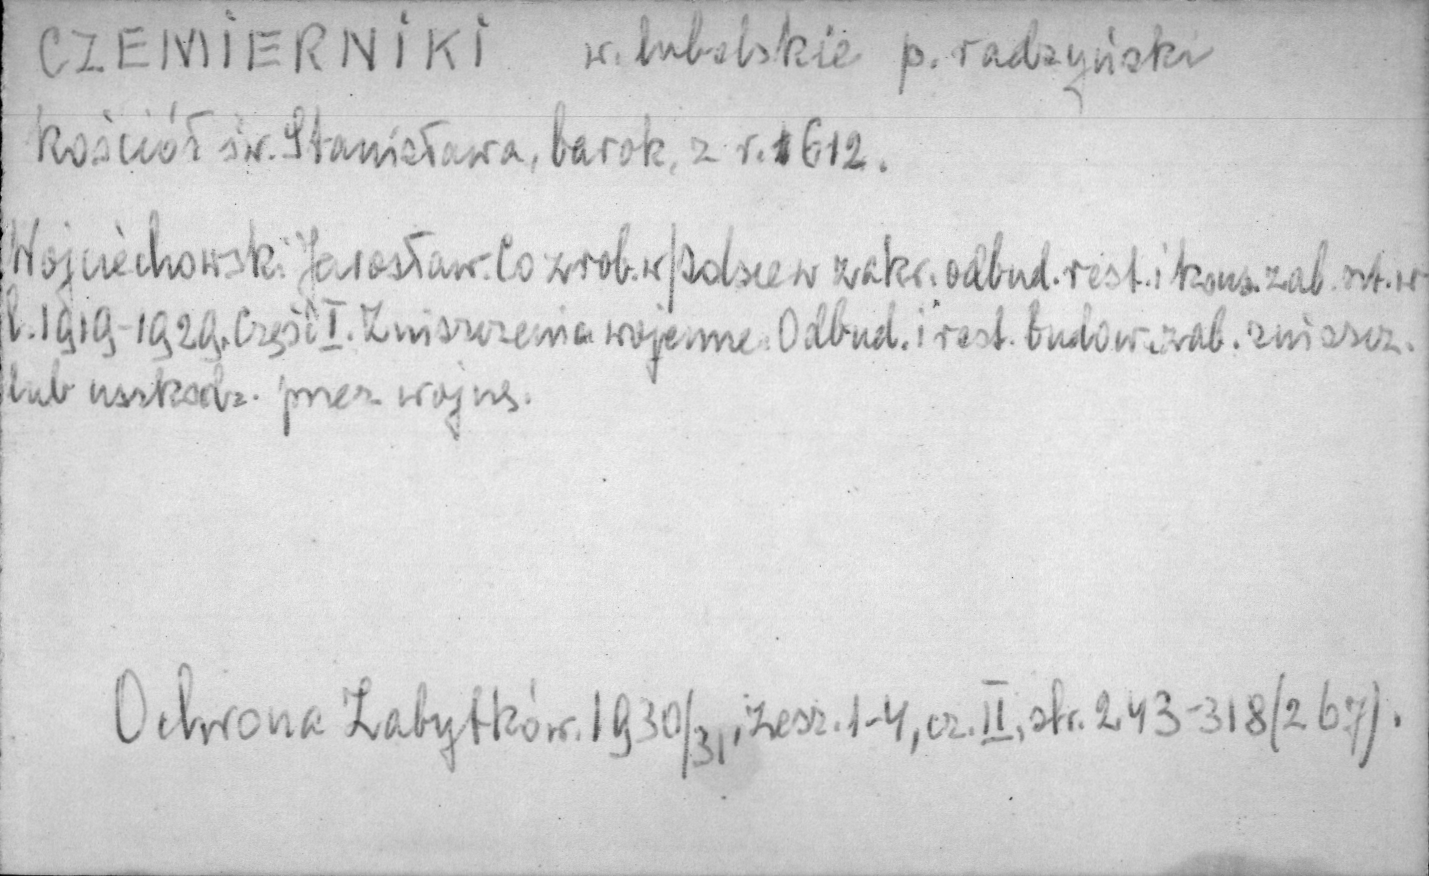 CZEMIERNIKI w. lubelskie p. radzyński
kościół św. Stanisława, barok, z r. 1612.
Wojciechowski Jarosław. Co zrob. w Polsce w zakr. odbud. rest. i kons. zab. szt. w
l. 1919-1929. Część I. Zniszczenia wojenne. Odbud. i rest. budow. zab. zniszcz.
lub uszkodz. przez wojnę.
Ochrona Zabytków. 1930/31, zesz. 1-4, cz. II, str. 243-318 (267).